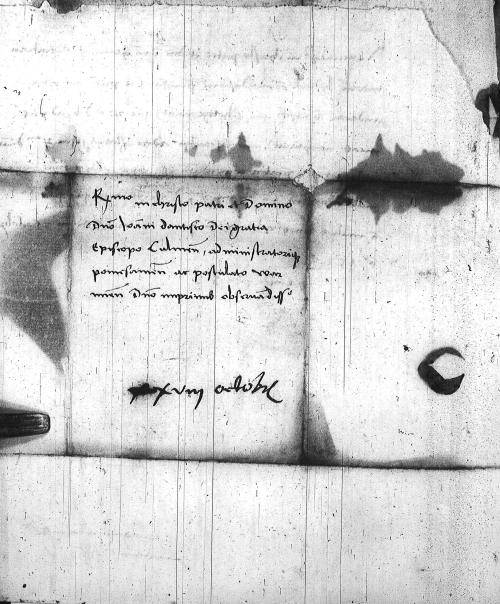 R[everendissi]mo in christo patri et Domino
Dno Ioanni dantisco Dei gratia
Episcopo Culmen, administratoriq
pomesanien ac postulato war
mien Dno imprimis observadiss
xviij octobr